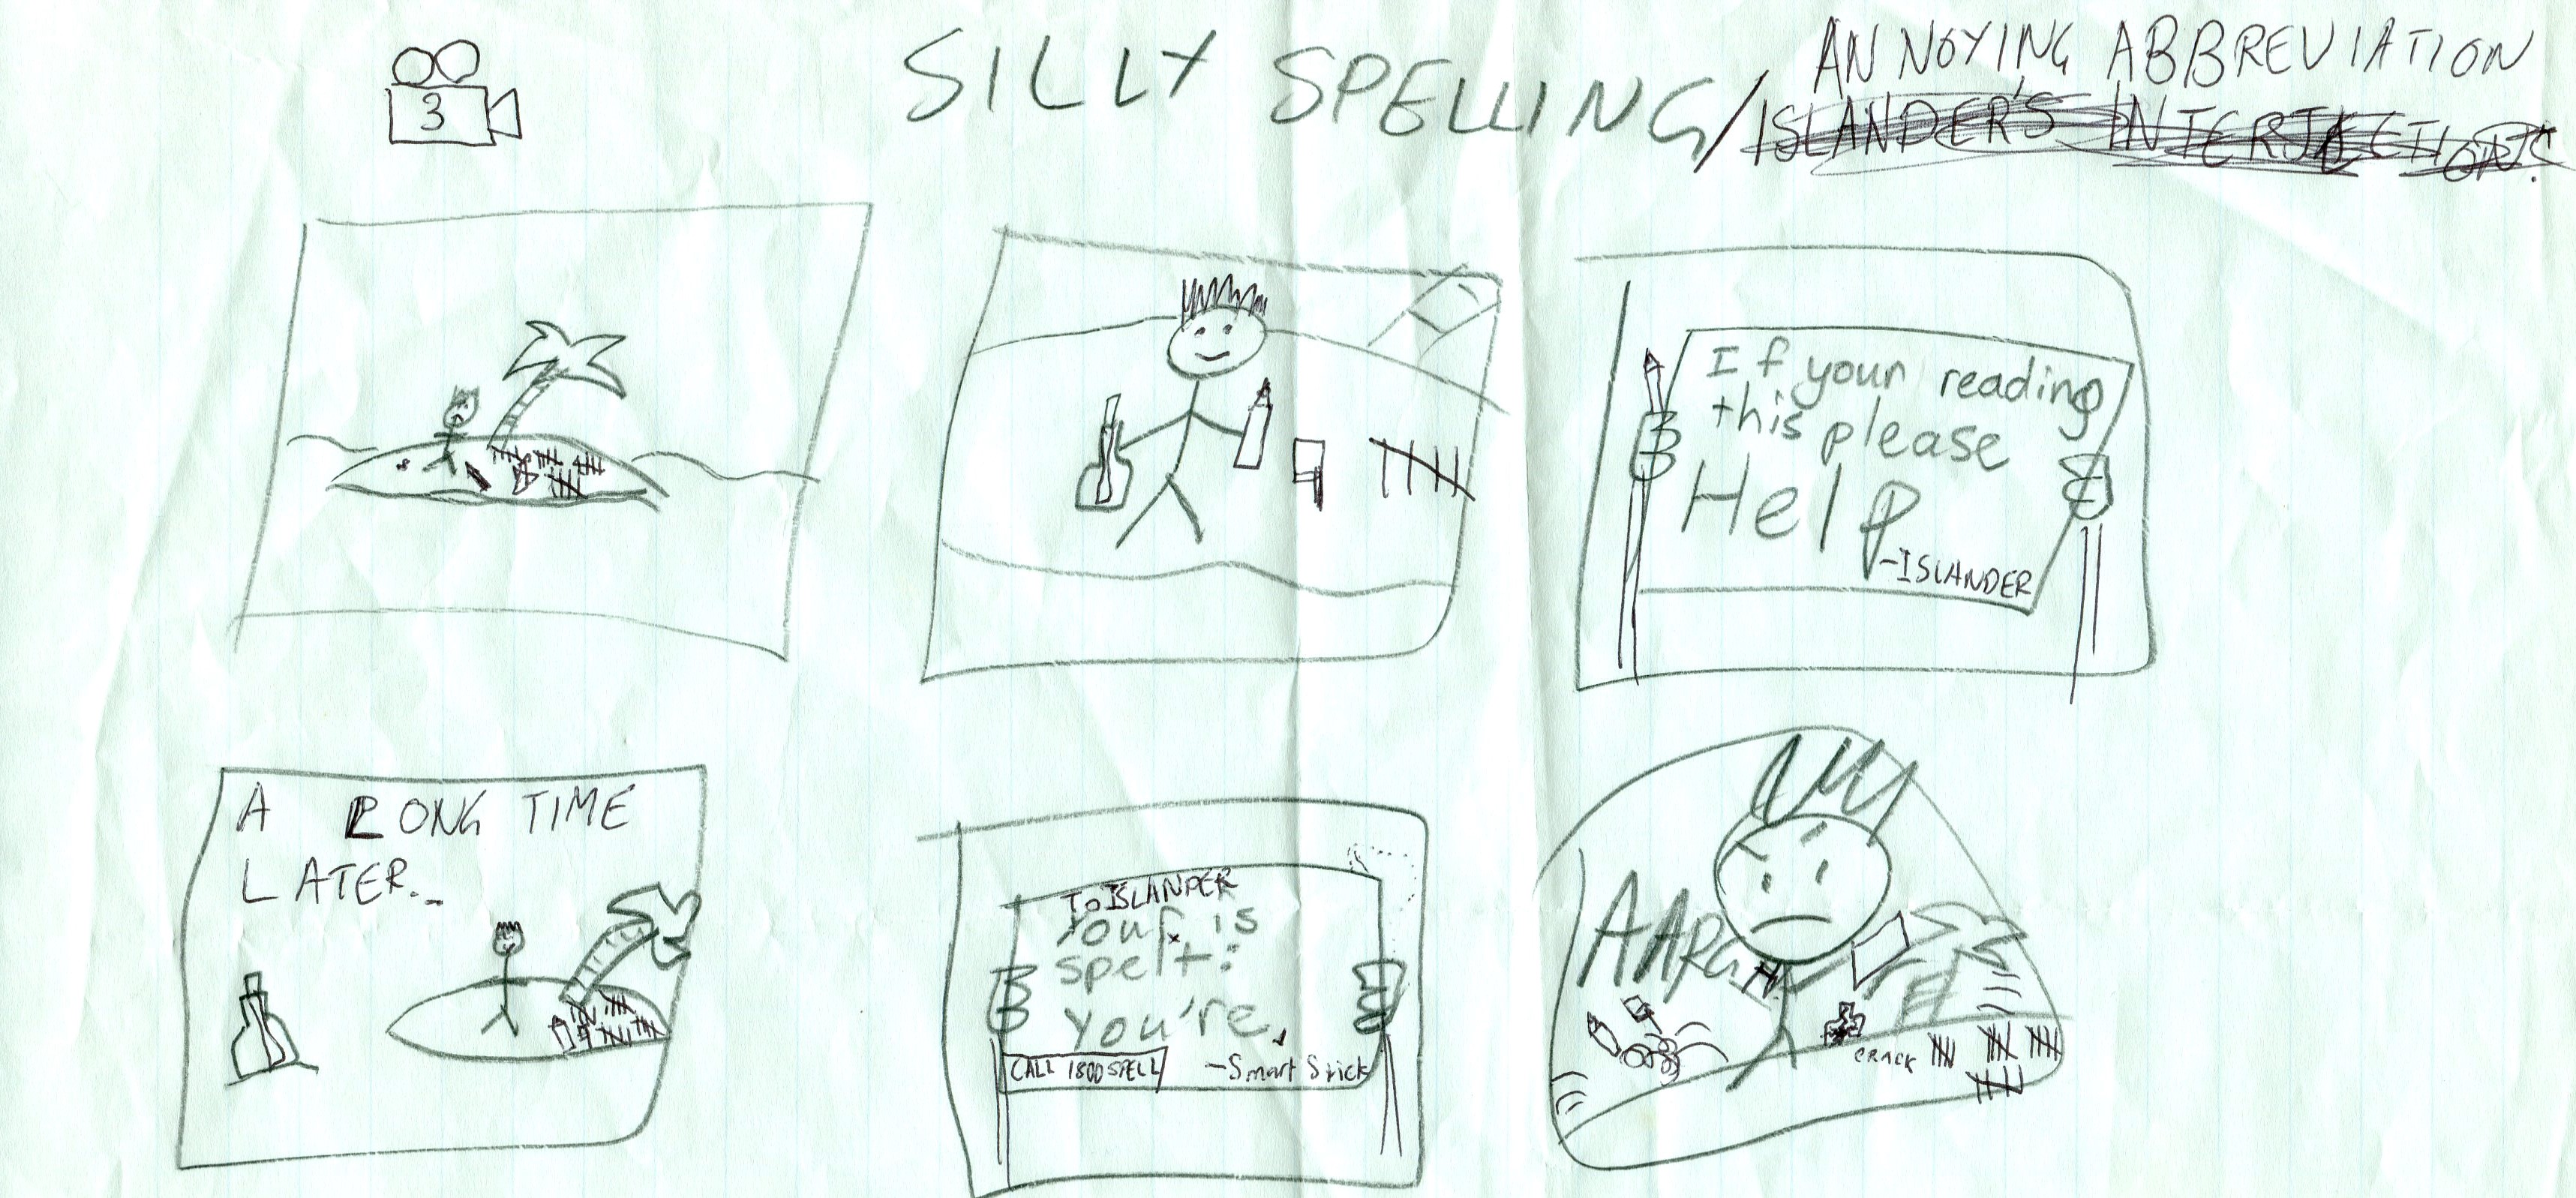 3
SILLY SPELLING/
ANNOYING ABBREVIATION
ISLANDER'S INTERJECTIONS
If your reading
this please
Help
-ISLANDER
A LONG TIME
LATER..
TO ISLANDER
Your is
spelt:
You're.
CALL 1800SPELL
-Smart Stick
AARGH
CRACK